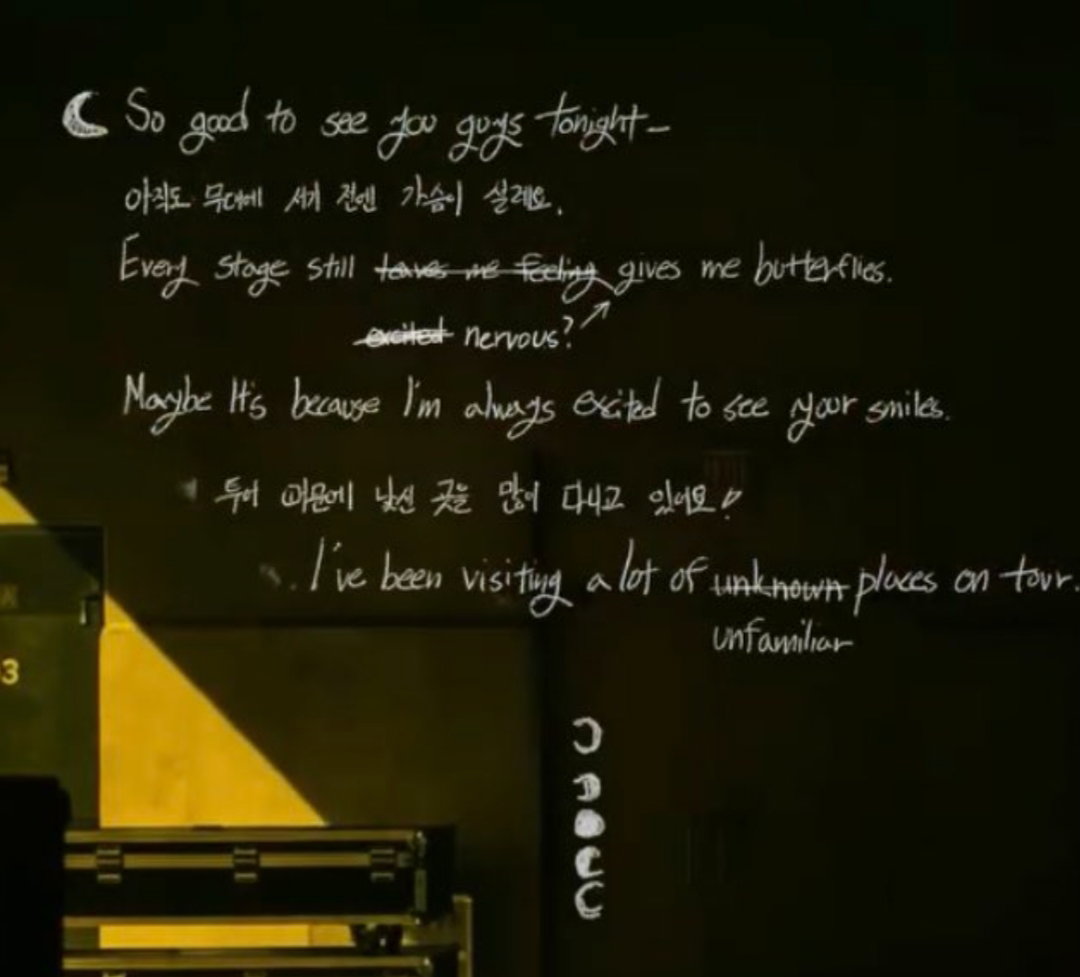 So good to see you guys tonight-
아직도 무대에 서기 전엔 가슴이 설레요.
Every stage still leaves me feeling gives me butterflies.
excited nervous?
Maybe It's because I'm always excited to see your smiles.
투어 때문에 낯선 곳을 많이 다니고 있어요!
I've been visiting a lot of unknown places on tour.
unfamiliar
3